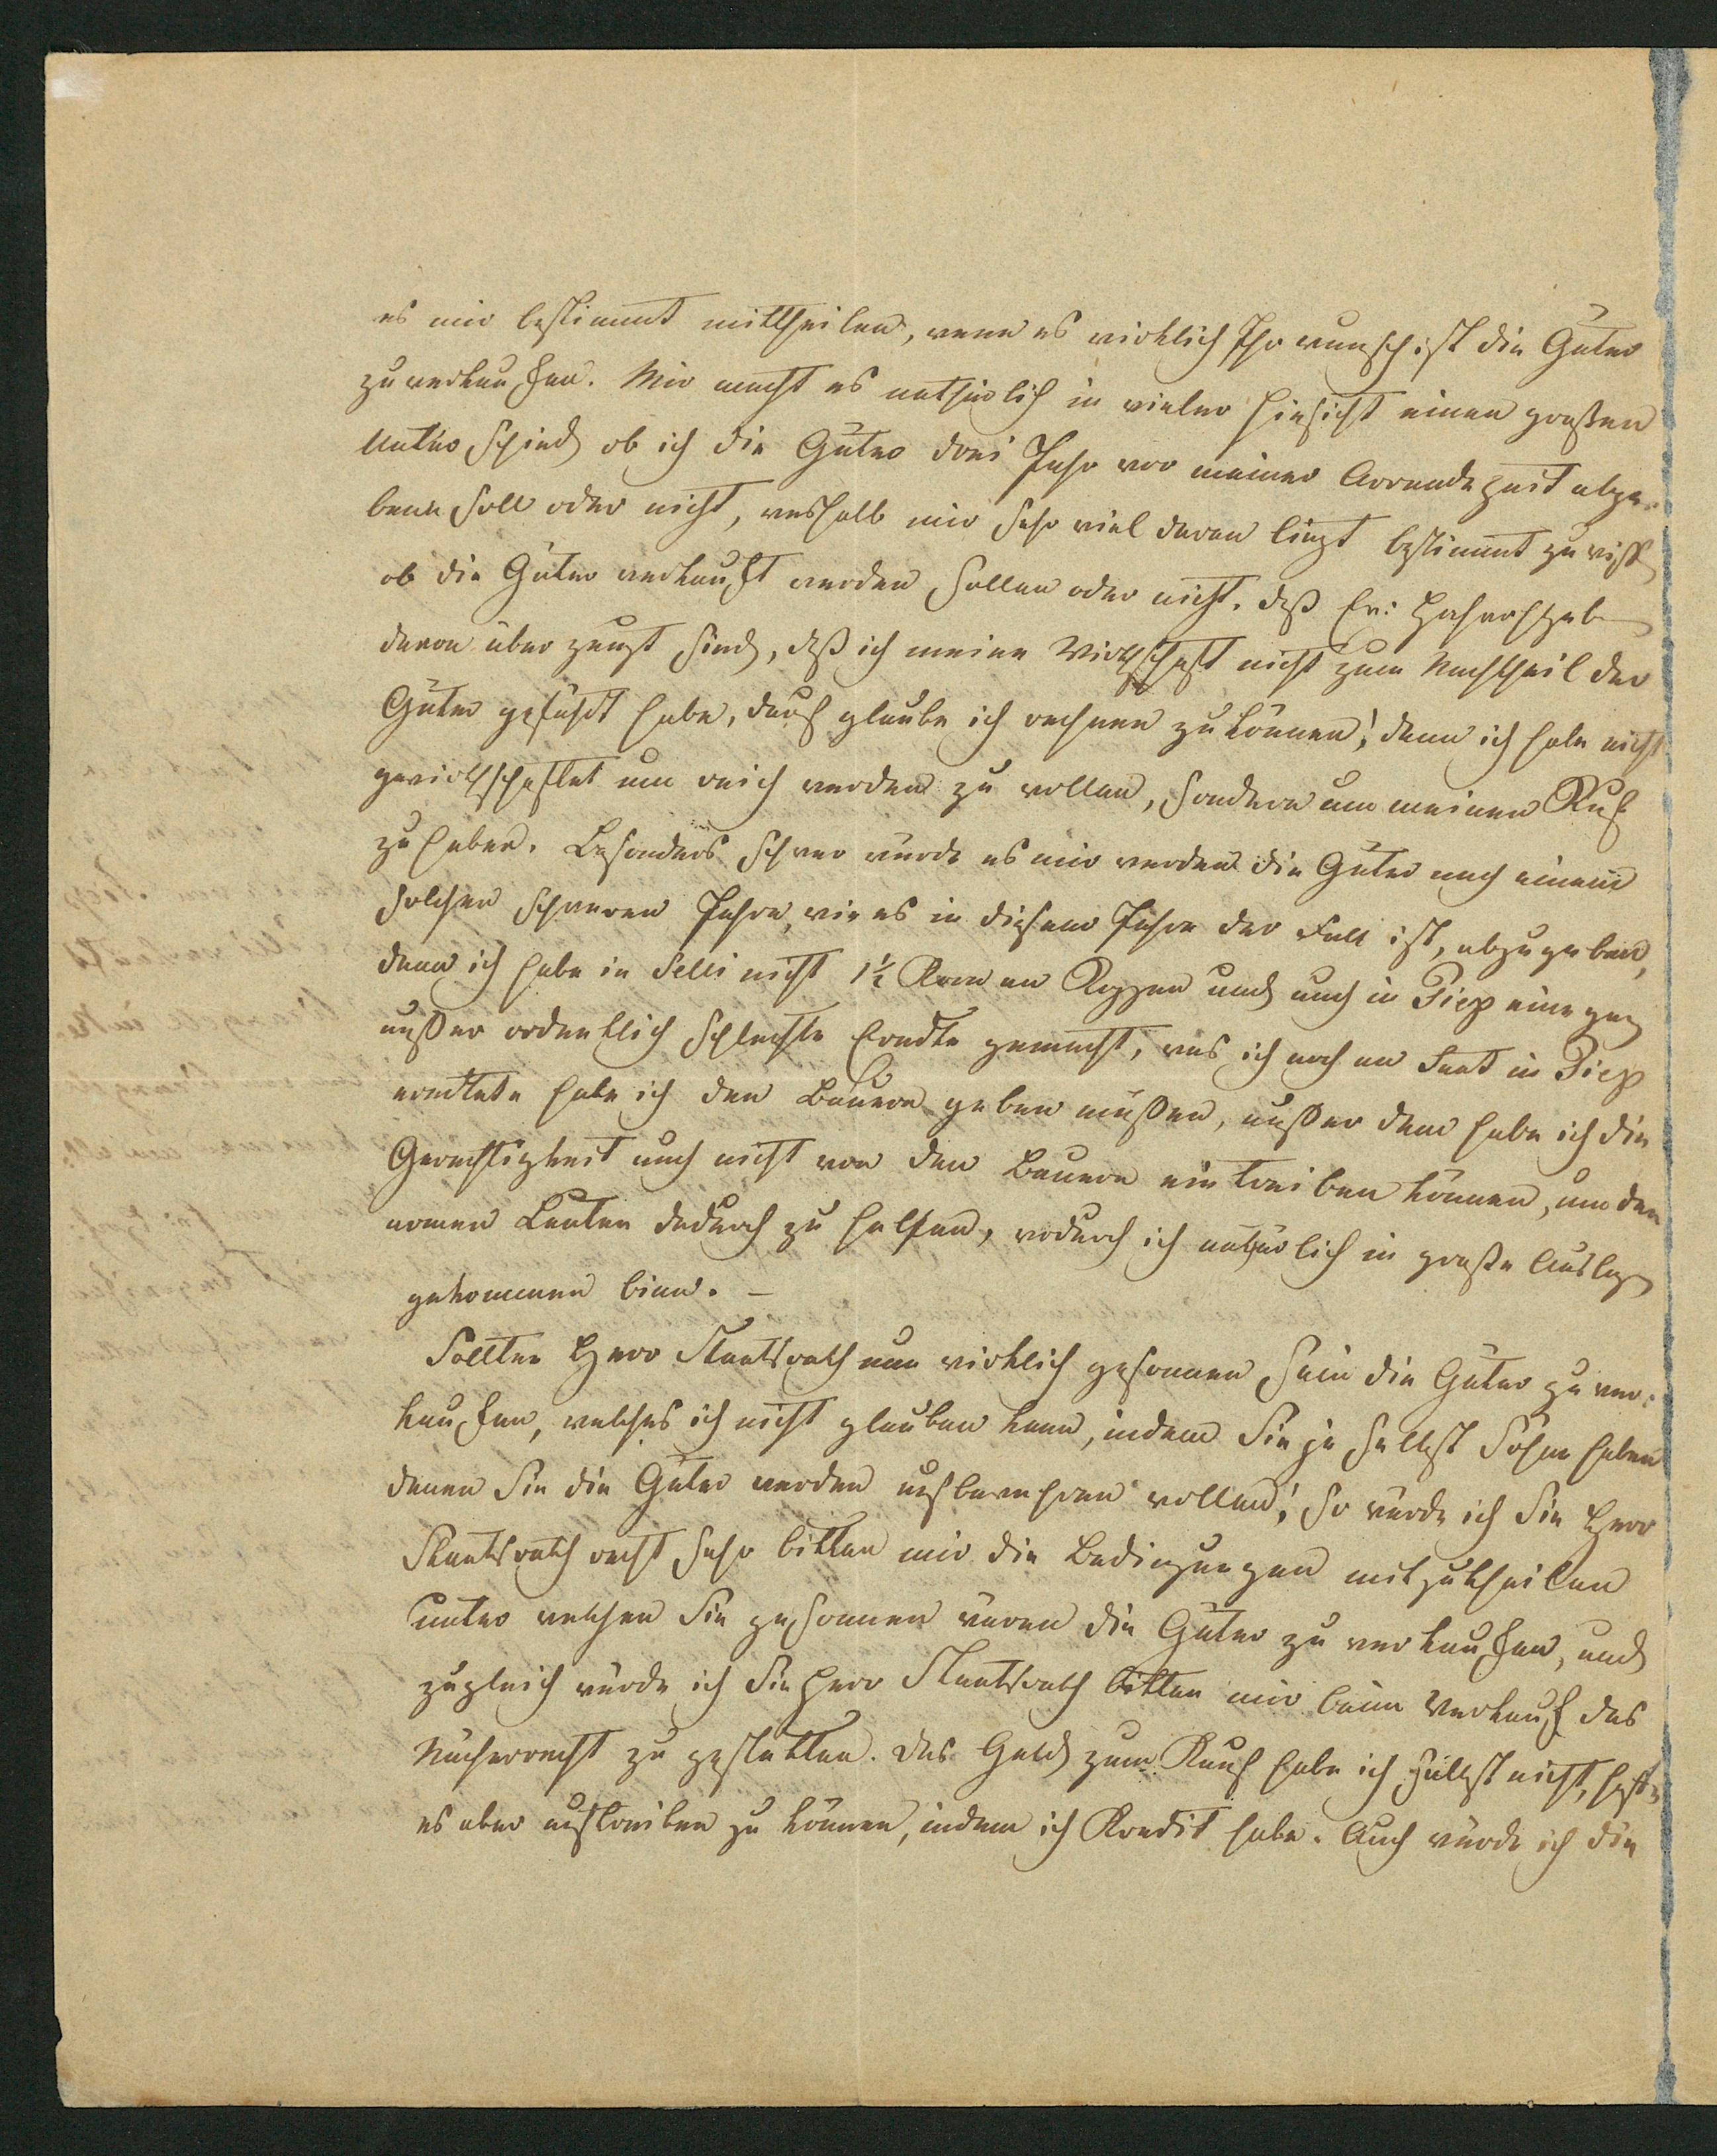 es mir bestimmt mittheilen, wenn es wirklich Ihr wunsch ist die Güter
zu verkaufen. Mir macht es nathürlich in vieler Hinsicht einen großen
Unterschied ob ich die Güter drei Jahr vor meiner Arrendezeit abge-
ben soll oder nicht, weshalb mir sehr viel daran liegt bestimmt zu wissen
ob die Güter verkauft werden sollen oder nicht. Daß Ew: Hochwohlgeb
davon überzeugt sind, daß ich meine Wirthschaft nicht zum Nachtheil der
Güter geführt habe, darf glaube ich rechnen zu können; denn ich habe nicht
gewirthschaftet um reich werden zu wollen, sondern um meinen Ruf
zu haben. Besonders schwer würde es mir werden die Güter nach einem
solchen schweren Jahre, wie es in diesem Jahre der Fall ist, abzugeben,
denn ich habe in Selli nicht 1½ Korn an Roggen und auch in Piep eine ganz
außerordentlich schlechte Erndte gemacht, was ich noch an Saat in Piep
erndtete habe ich den Bauern geben müßen, außerdem habe ich die
Gerechtigkeit auch nicht von den Bauern eintreiben können, um den
armen Leuten dadurch zu helfen, wodurch ich natürlich in große Auslagen
gekommen binn. –
Sollten Herr Staatsrath nun wirklich gesonnen sein die Güter zu ver-
kaufen, welches ich nicht glauben kann, indem Sie ja selbst Söhne haben
denen Sie die Güter werden aufbewahren wollen; so würde ich Sie Herr
Staatsrath recht sehr bitten mir die Bedingungen mitzutheilen
unter welchen Sie gesonnen wären die Güter zu verkaufen, und
zugleich würde ich Sie Herr Staatsrath bitten mir beim Verkauf das
Näherrecht zu gestatten. Das Geld zum Kauf habe ich selbst nicht, hoffe
es aber auftreiben zu können, indem ich Kredit habe. Auch würde ich die